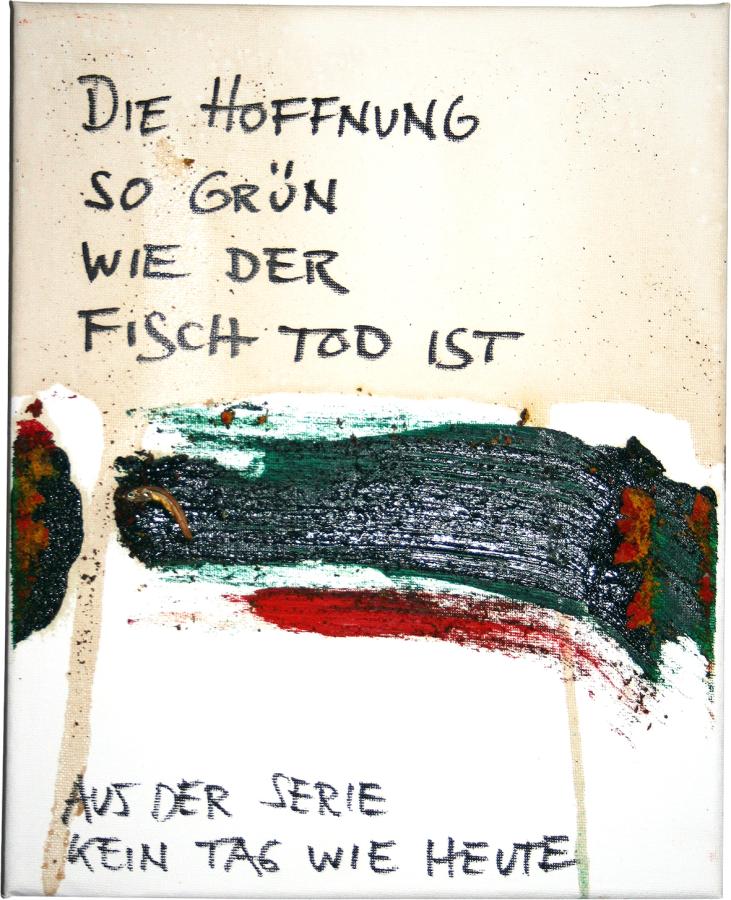 DIE HOFFNUNG
SO GRÜN
WIE DER
FISCH TOD IST
AUS DER SERIE
KEIN TAG WIE HEUTE